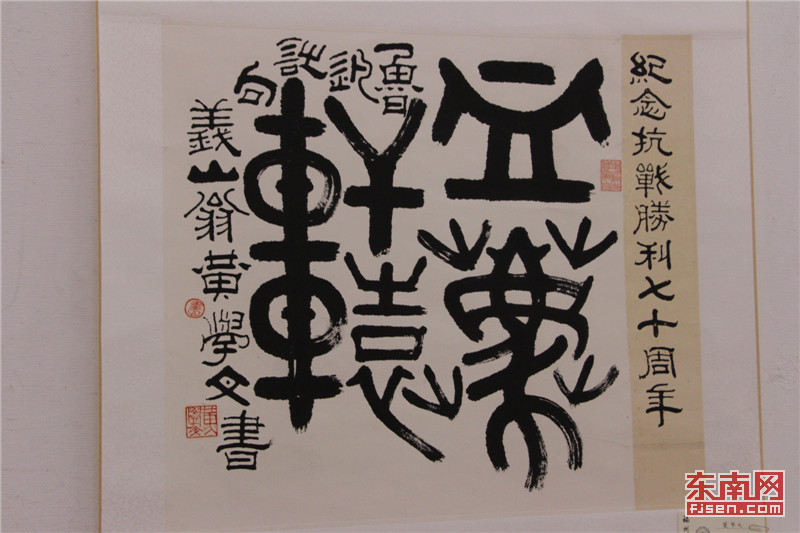 紀念抗戰勝利七十周年
血薦
軒轅
魯迅詩句
義山翁黃學文書
东南网
fjsen.com